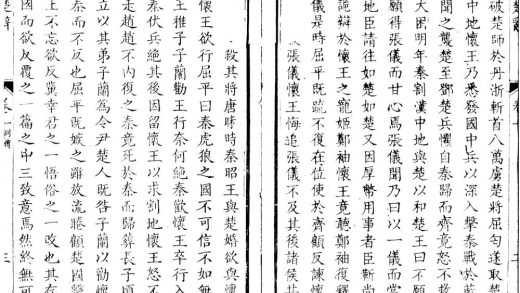 楚辭
二
破楚師於丹淅斬首八萬虜楚將屈匄遂取楚
中地懷王乃悉發國中兵以深入擊秦戰於藍
聞之襲楚至鄧楚兵懼自秦歸而齊竟怒不救
大困明年秦割漢中地與楚以和楚王曰不願
願得張儀而甘心焉張儀聞乃曰以一儀而當
地臣請往如楚如楚又因厚幣用事者臣靳尚
詭辯於懷王之寵姬鄭袖懷王竟聽鄭袖復釋
儀是時屈平既疏不復在位使於齊顧反諫懷
懷王悔追張儀不及其後諸侯共
殺其將唐昧時秦昭王與楚婚欲與懷
懷王欲行屈平曰秦虎狼之國不可信不如無
王稚子子蘭勸王行奈何絕秦歡懷王卒行入
秦伏兵絕其後因留懷王以求割地懷王怒不
走趙趙不內復之秦竟死於秦而歸葬長子頃
立以其弟子蘭為令尹楚人既咎子蘭以勸懷
秦而不反也屈平既嫉之雖放流睠顧楚國繫
上不忘欲反冀幸君之一悟俗之一改也其存
國而欲反覆之一篇之中三致意焉然終無可
楚辭
卷一
列傳
三